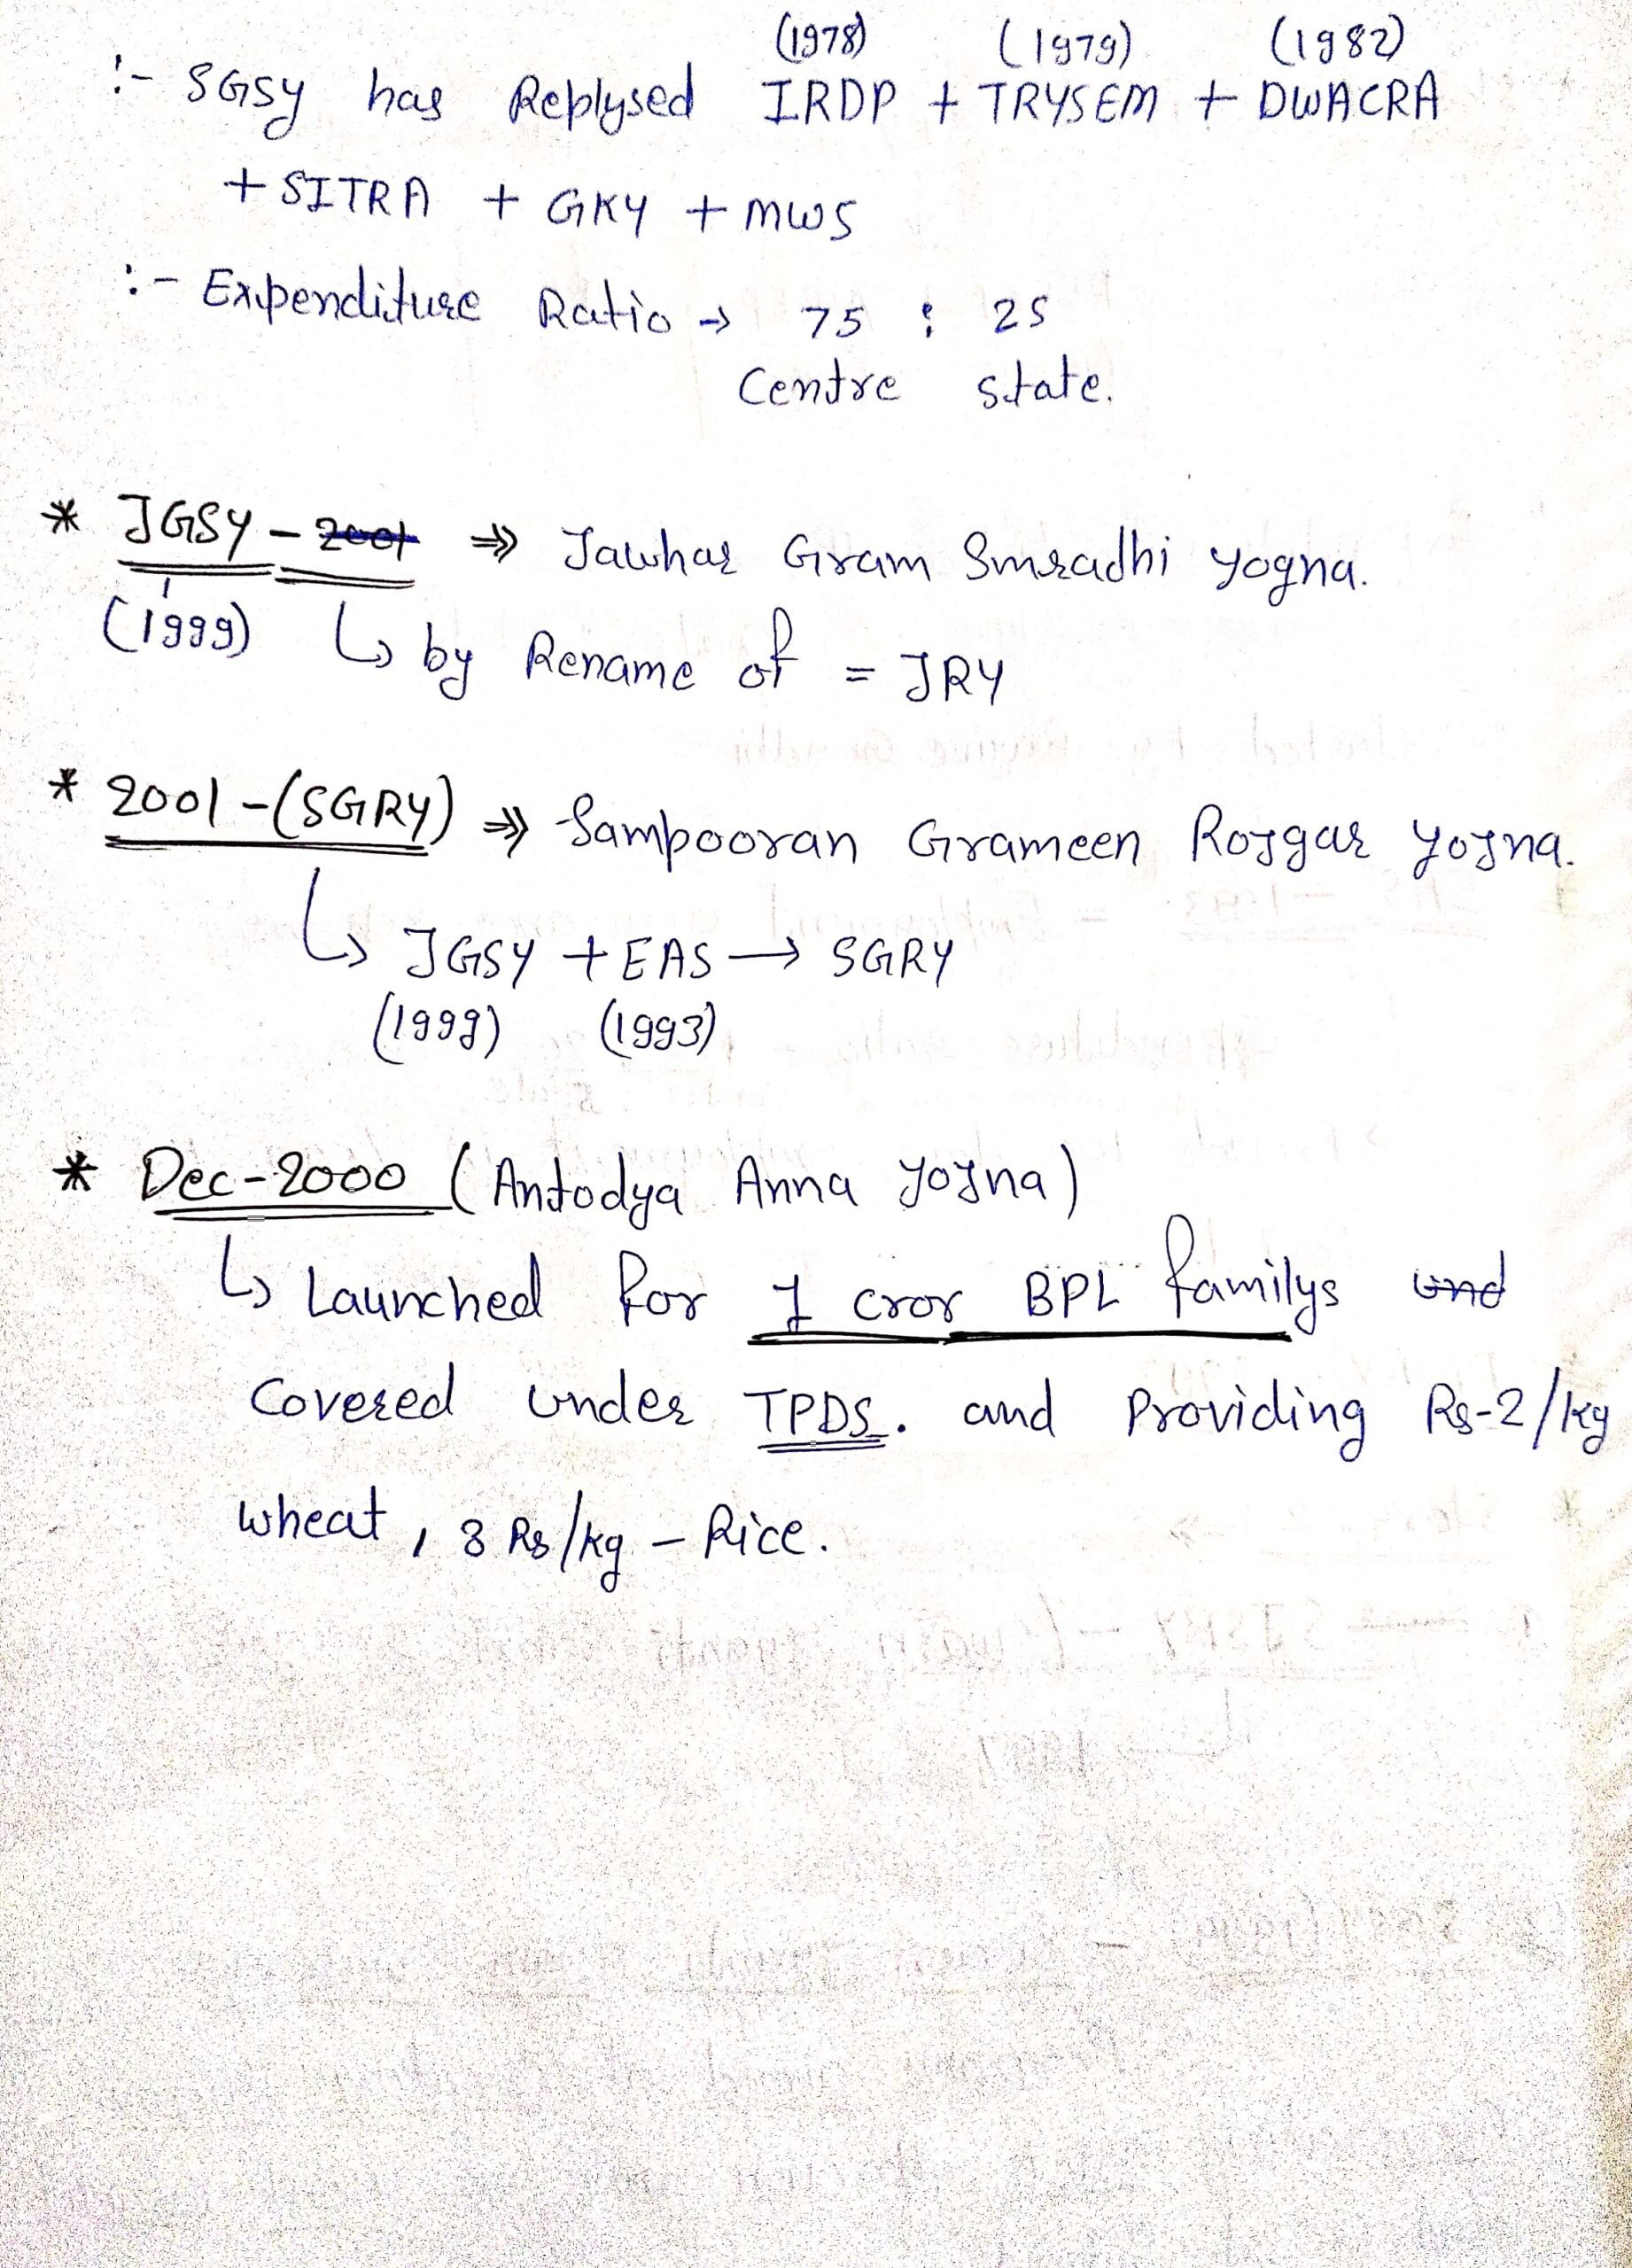 (1978) (1979) (1982)
:- SGSY has Replysed IRDP + TRYSEM + DWACRA
+ SITRA + GKY + MWS
:- Expenditure Ratio → 75 : 25
Centre state.
* JGSY - 2001 ⇒ Jawhar Gram Smradhi Yogna.
(1999) ↳ by Rename of = JRY
* 2001 - (SGRY) ⇒ Sampooran Grameen Rojgar Yojna.
↳ JGSY + EAS → SGRY
(1999) (1993)
* Dec-2000 (Antodya Anna Yojna)
↳ Launched for 1 cror BPL familys und
Covered under TPDS. and Providing Rs-2/kg
wheat, 3 Rs/kg - Rice.